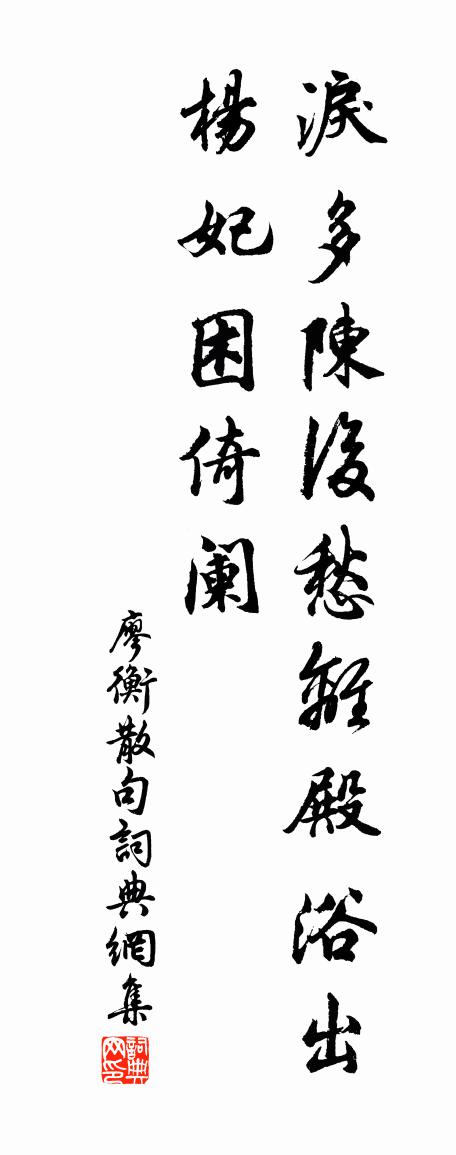 淚多陳後愁離殿浴出
楊妃困倚阑
廖衡散句詞典網集
詞典网印